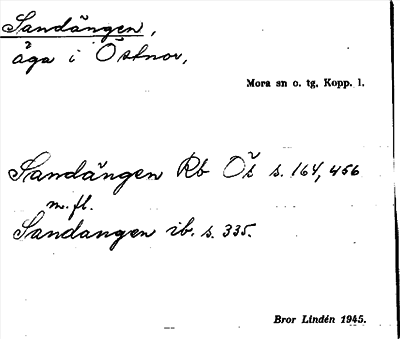 Sandängen,
äga i Östnor,
Mora sn o. tg. Kopp. l.
Sandängen Rb Ös s. 164, 456
m. fl.
Sandangen ib. s. 335.
Bror Lindén 1945.